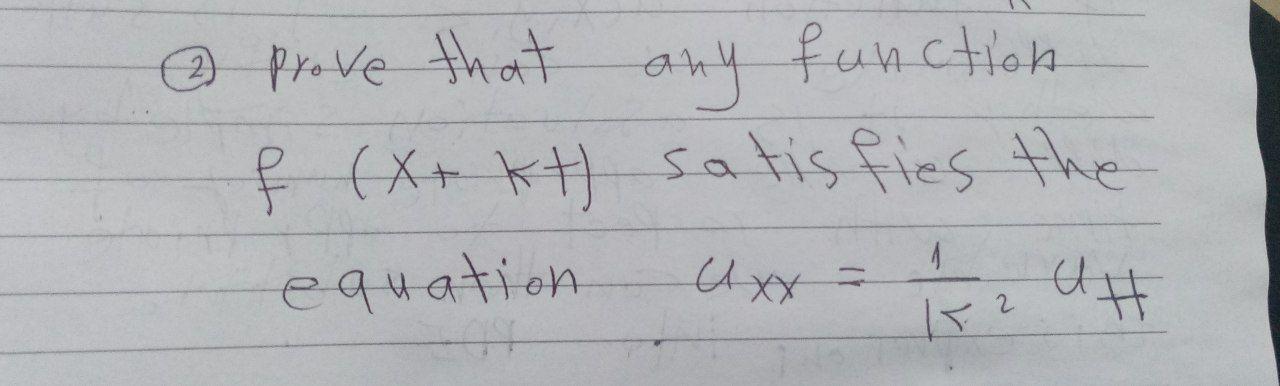 ② prove that any function
f (x+ kt) satisfies the
equation uxx = 1/k² utt